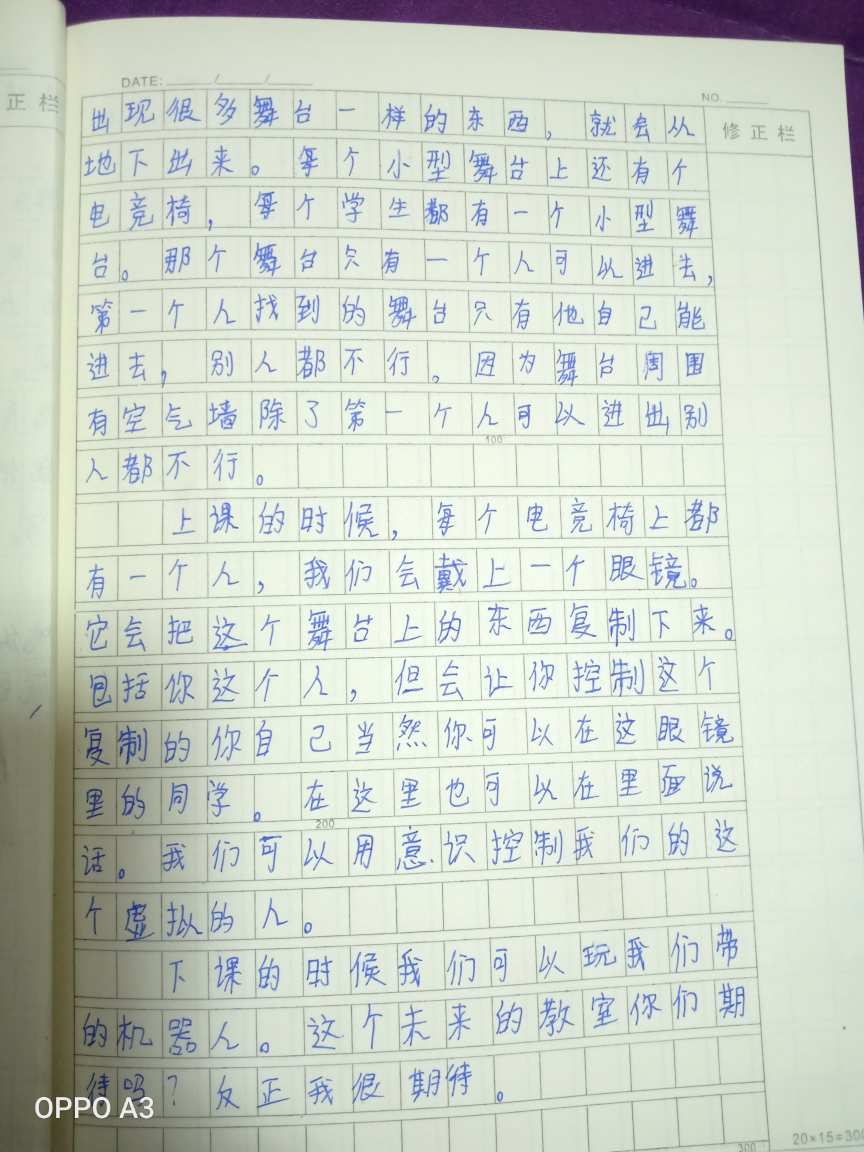 正栏
DATE: / /
NO.
修正栏
出现很多舞台一样的东西，就会从
地下出来。每个小型舞台上还有个
电竞椅，每个学生都有一个小型舞
台。那个舞台只有一个人可以进去，
第一个人找到的舞台只有他自己能
进去，别人都不行。因为舞台周围
有空气墙除了第一个人可以进出别
100
人都不行。
上课的时候，每个电竞椅上都
有一个人，我们会戴上一个眼镜。
它会把这个舞台上的东西复制下来。
包括你这个人，但会让你控制这个
复制的你自己当然你可以在这眼镜
里的同学。在这里也可以在里面说
200
话。我们可以用意识控制我们的这
个虚拟的人。
下课的时候我们可以玩我们带
的机器人。这个未来的教室你们期
待吗？反正我很期待。
OPPO A3
300
20×15=300